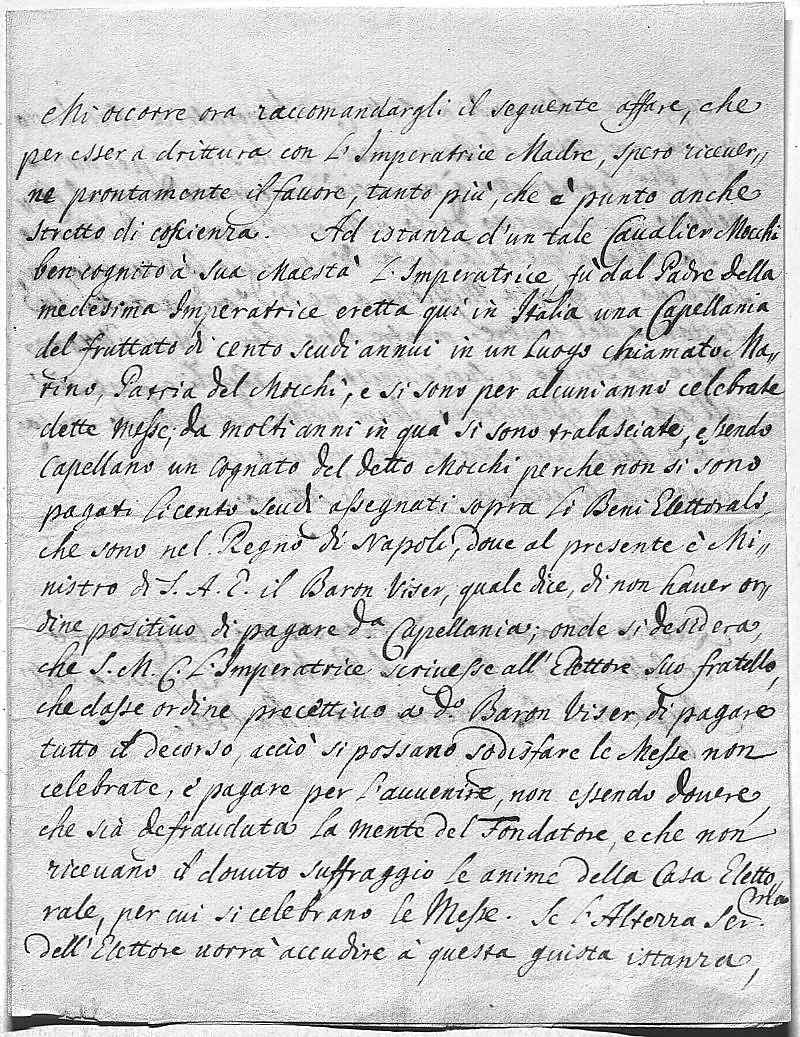 Mi occorre ora raccomandargli il seguente affare, che
per esser a drittura con L'Imperatrice Madre, spero riceuer„
ne prontamente il fauore, tanto più, che è punto anche
stretto di coscienza. Ad istanza d'un tale Caualier Mocchi
ben cognito à sua Maestà L'Imperatrice, fù dal Padre della
medesima Imperatrice eretta qui in Italia una Capellania
del fruttato di cento scudi annui in un Luogo chiamato Ma„
rino, Patria del Mocchi, e si sono per alcuni anno celebrate
dette Messe; da molti anni in quà si sono tralasciate, essendo
Capellano un Cognato del detto Mocchi perche non si sono
pagati li cento scudi assegnati sopra li Beni Elettorali,
che sono nel Regno di Napoli, doue al presente è Mi„
nistro di S. A. E. il Baron Viser, quale dice, di non hauer or„
dine positiuo di pagare d.a Capellania; onde si desidera,
che S. M. C. L'Imperatrice scriuesse all'Elettore suo fratello,
che dasse ordine precettiuo a d.o Baron Viser, di pagare
tutto il decorso, acciò si possano sodisfare le Messe non
celebrate, e pagare per l'auuenire, non essendo douere,
che sià defraudata la mente del Fondatore, e che non
riceuano il douuto suffraggio le anime della Casa Eletto„
rale, per cui si celebrano le Messe. Se l'Altezza Ser.ma
dell'Elettore uorrà accudire à questa giusta istanza,